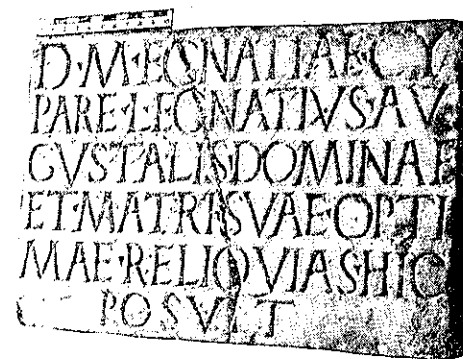 D·M·EGNATIAE·CY
PARE·L·EGNATIVS·AV
GVSTALIS·DOMINAE
ET·MATRI·SVAE·OPTI
MAE·RELIQVIAS·HIC
POSVIT